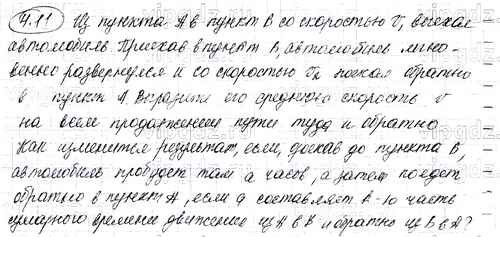 4.11 Из пункта А в пункт В со скоростью V₁ выехал
автомобиль. Приехав в пункт В, автомобиль мгно-
венно развернулся и со скоростью V₂ поехал обратно
в пункт А. Выразить его среднюю скорость V
на всем продолжении пути туда и обратно.
Как изменится результат, если, доехав до пункта В,
автомобиль пробудет там a часов, а затем поедет
обратно в пункт А, если a составляет k-ю часть
суммарного времени движения из А в В и обратно из В в А?